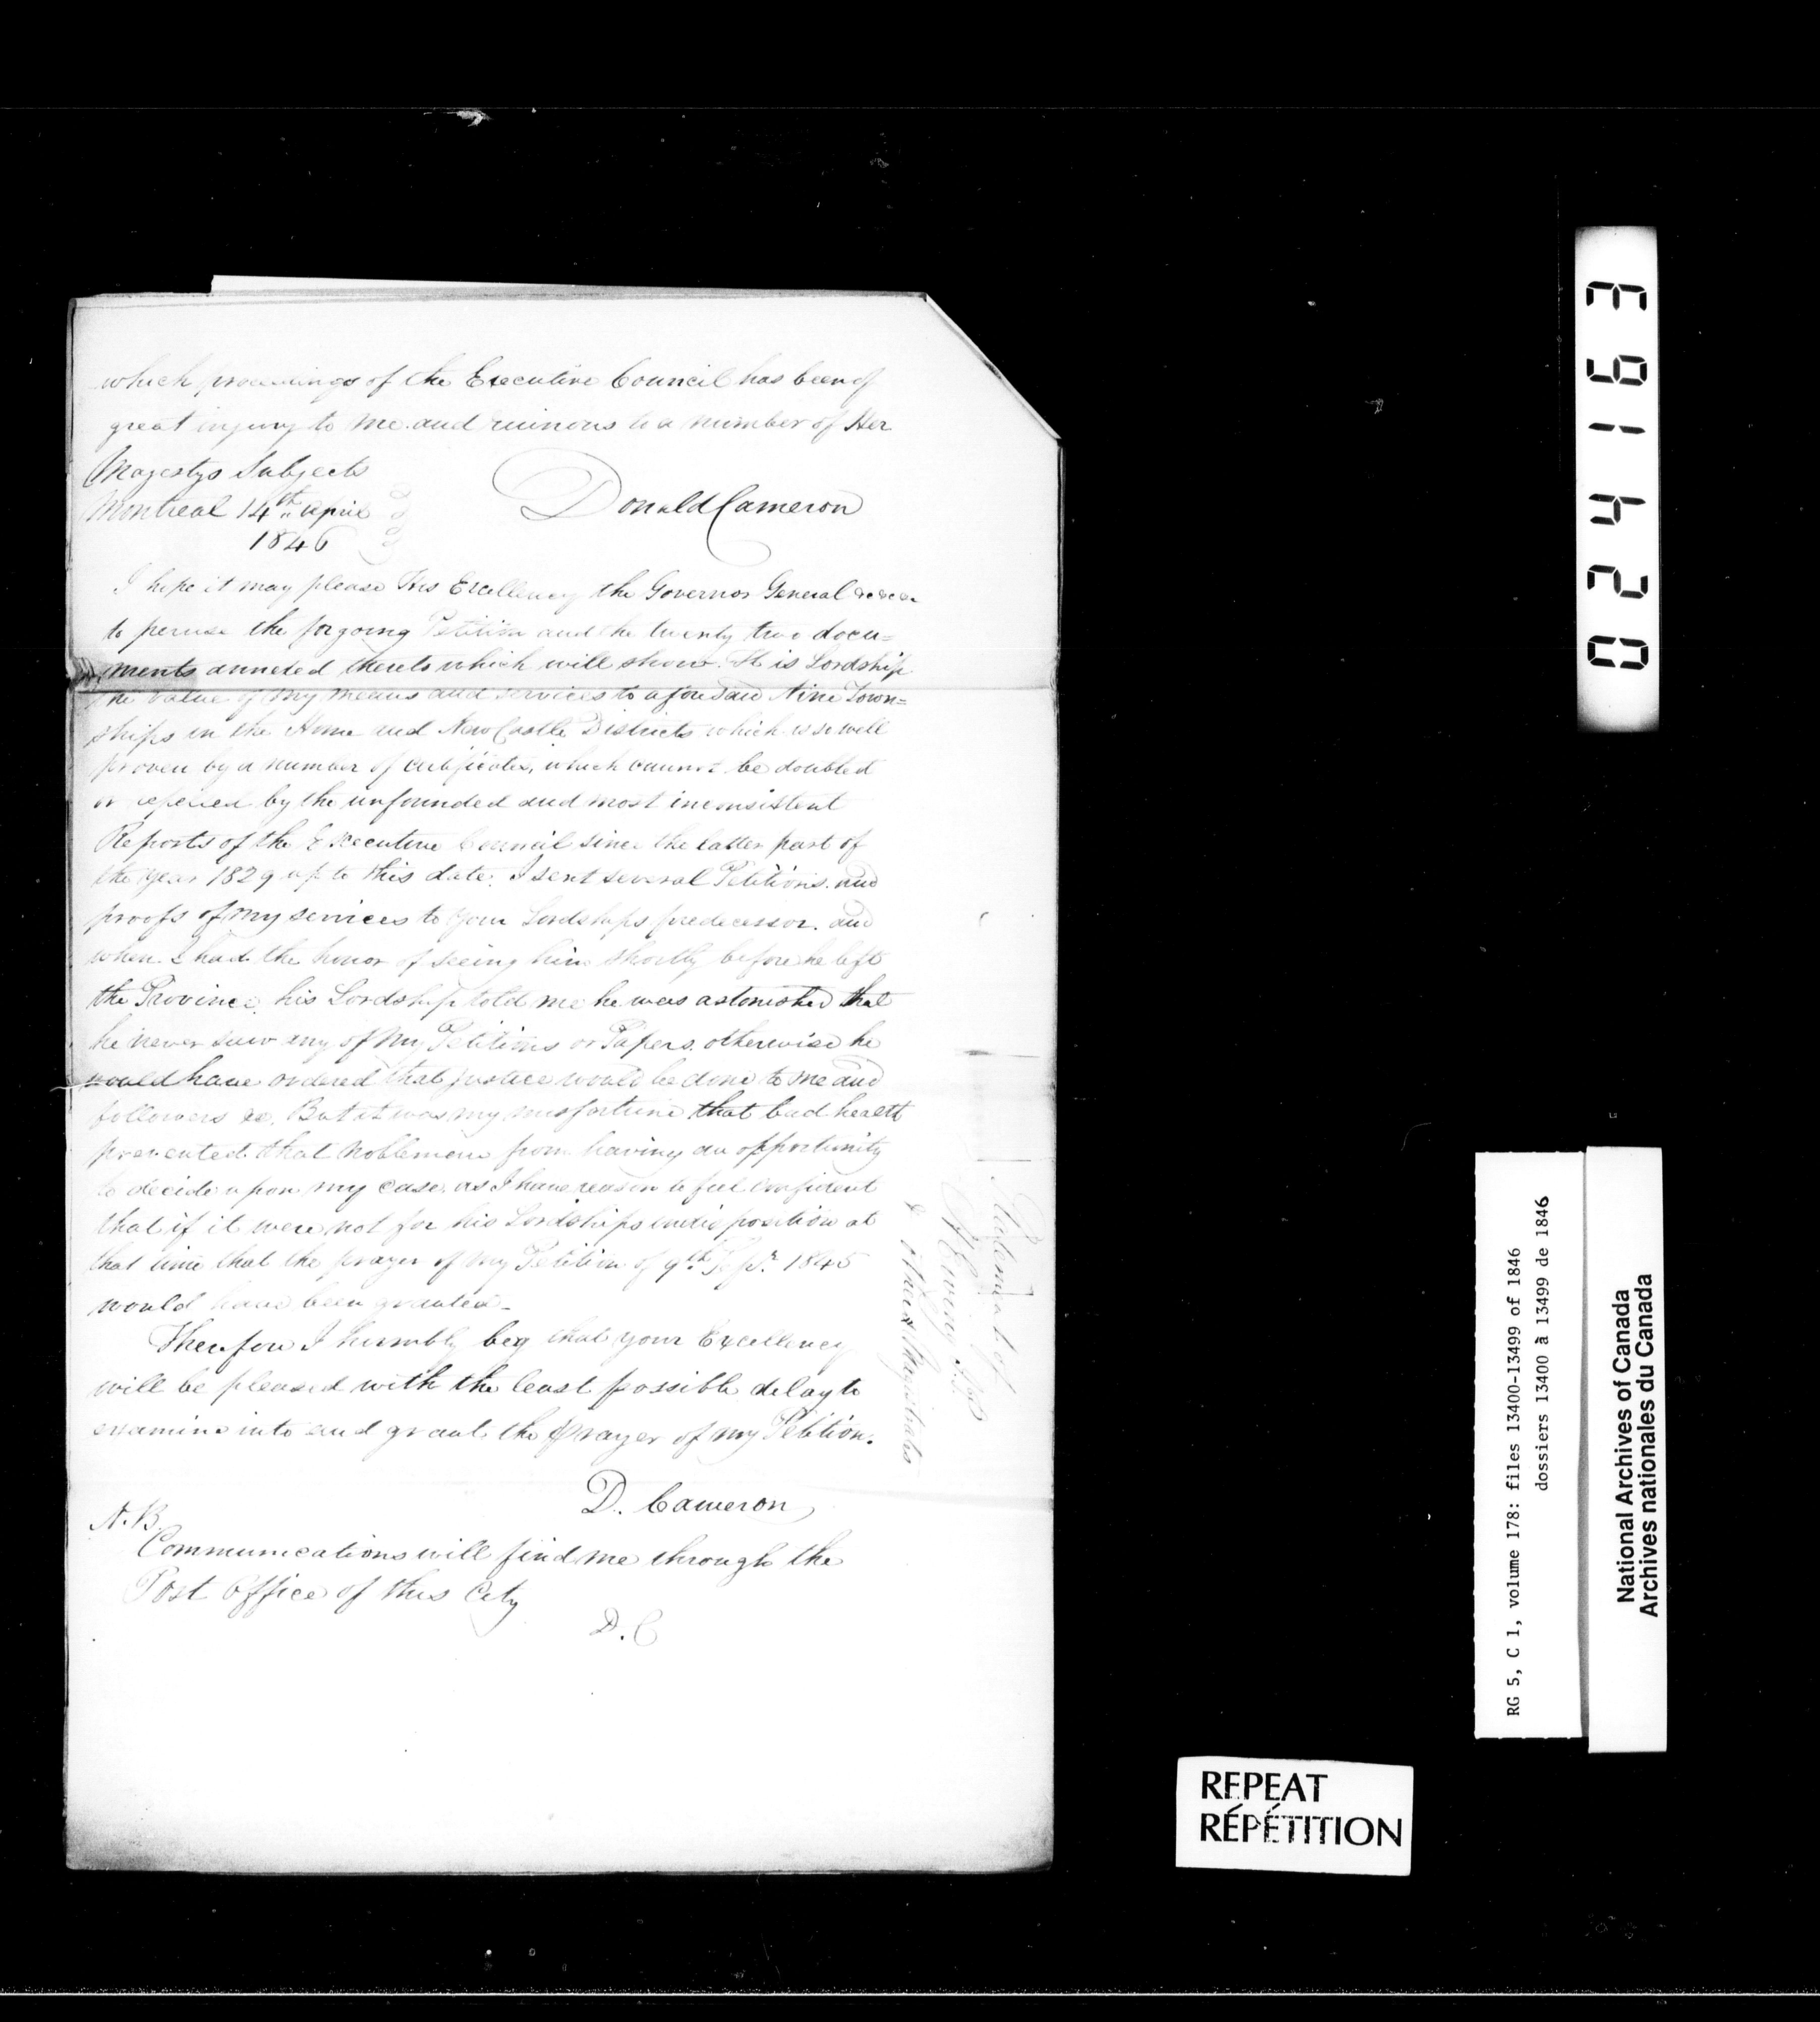 which proceedings of the Executive Council has been of
great injury to me and ruinous to a number of Her
Majestys Subjects
Montreal 14th april
1846
Donald Cameron
I hope it may please His Excellency the Governor General &c &c &c
to peruse the forgoing Petition and the twenty two docu=
ments annexed thereto which will show His Lordship
the value of my means and services to aforesaid Nine Town=
ships in the Home and NewCastle Districts which is so well
proven by a number of certificates, which cannot be doubted
or by the unfounded and most inconsistent
Reports of the Executive Council since the latter part of
the year 1829 up to this date. I sent several Petitions and
proofs of my services to your Lordships predecessor. and
when I had the honor of seeing him shortly before he left
the Province, his Lordship told me he was astonished that
he never saw any of my Petitions or Papers. otherwise he
would have ordered that justice would be done to me and
followers &c. But it was my misfortune that bad health
prevented that Nobleman from having an opportunity
to decide upon my case. as I have reason to feel confident
that if it were not for his Lordships indisposition at
that time that the prayer of my Petition of 9th Sepr. 1845
would have been granted_
Therefore I humbly beg that your Excellency
will be pleased with the least possible delay to
examine into and grant the Prayer of my Petition.
D. Cameron
N.B.
Communications will find me through the
Post Office of this City
D. C
024163
RG 5, C 1, volume 178: files 13400-13499 of 1846
dossiers 13400 à 13499 de 1846
National Archives of Canada
Archives nationales du Canada
REPEAT
RÉPÉTITION